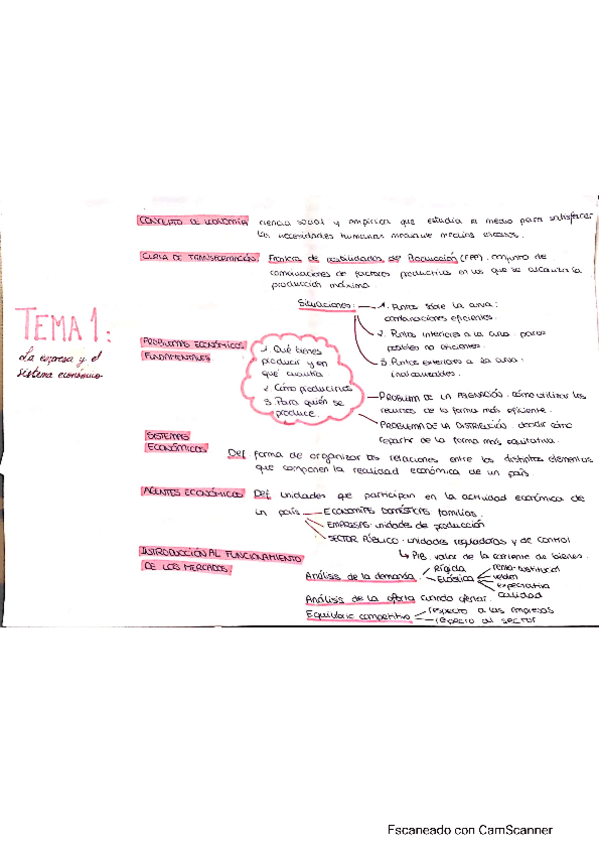 CONCEPTO DE ECONOMÍA ciencia social y empírica que estudia el medio para satisfacer
las necesidades humanas mediante medios escasos.
CURVA DE TRANSFORMACIÓN. Frontera de posibilidades de Producción (FPP). conjunto de
combinaciones de factores productivos en los que se alcanza la
producción máxima.
Situaciones:
1. Puntos sobre la curva:
combinaciones eficientes.
2. Puntos interiores a la curva. puntos
posibles no eficientes.
3. Puntos exteriores a la curva:
inalcanzables.
TEMA 1:
La empresa y el
sistema económico
PROBLEMAS ECONÓMICOS
FUNDAMENTALES
1. Qué bienes
producir y en
qué cuantía
2. Cómo producirlos
3. Para quién se
produce.
PROBLEMA DE LA ASIGNACIÓN. cómo utilizar los
recursos de la forma más eficiente.
PROBLEMA DE LA DISTRIBUCIÓN. decidir cómo
repartir de la forma más equitativa.
SISTEMAS
ECONÓMICOS
Def forma de organizar las relaciones entre los distintos elementos
que componen la realidad económica de un país.
AGENTES ECONÓMICOS Def unidades que participan en la actividad económica de
un país
ECONOMÍAS DOMÉSTICAS familias.
EMPRESAS. unidades de producción
SECTOR PÚBLICO. unidades reguladoras y de control
↳ PIB. valor de la corriente de bienes.
INTRODUCCIÓN AL FUNCIONAMIENTO
DE LOS MERCADOS
Análisis de la demanda
Rígida
Elástica
expectativa
calidad
Análisis de la oferta cuándo ofertar.
Equilibrio competitivo
respecto a las empresas
respecto al sector
Escaneado con CamScanner